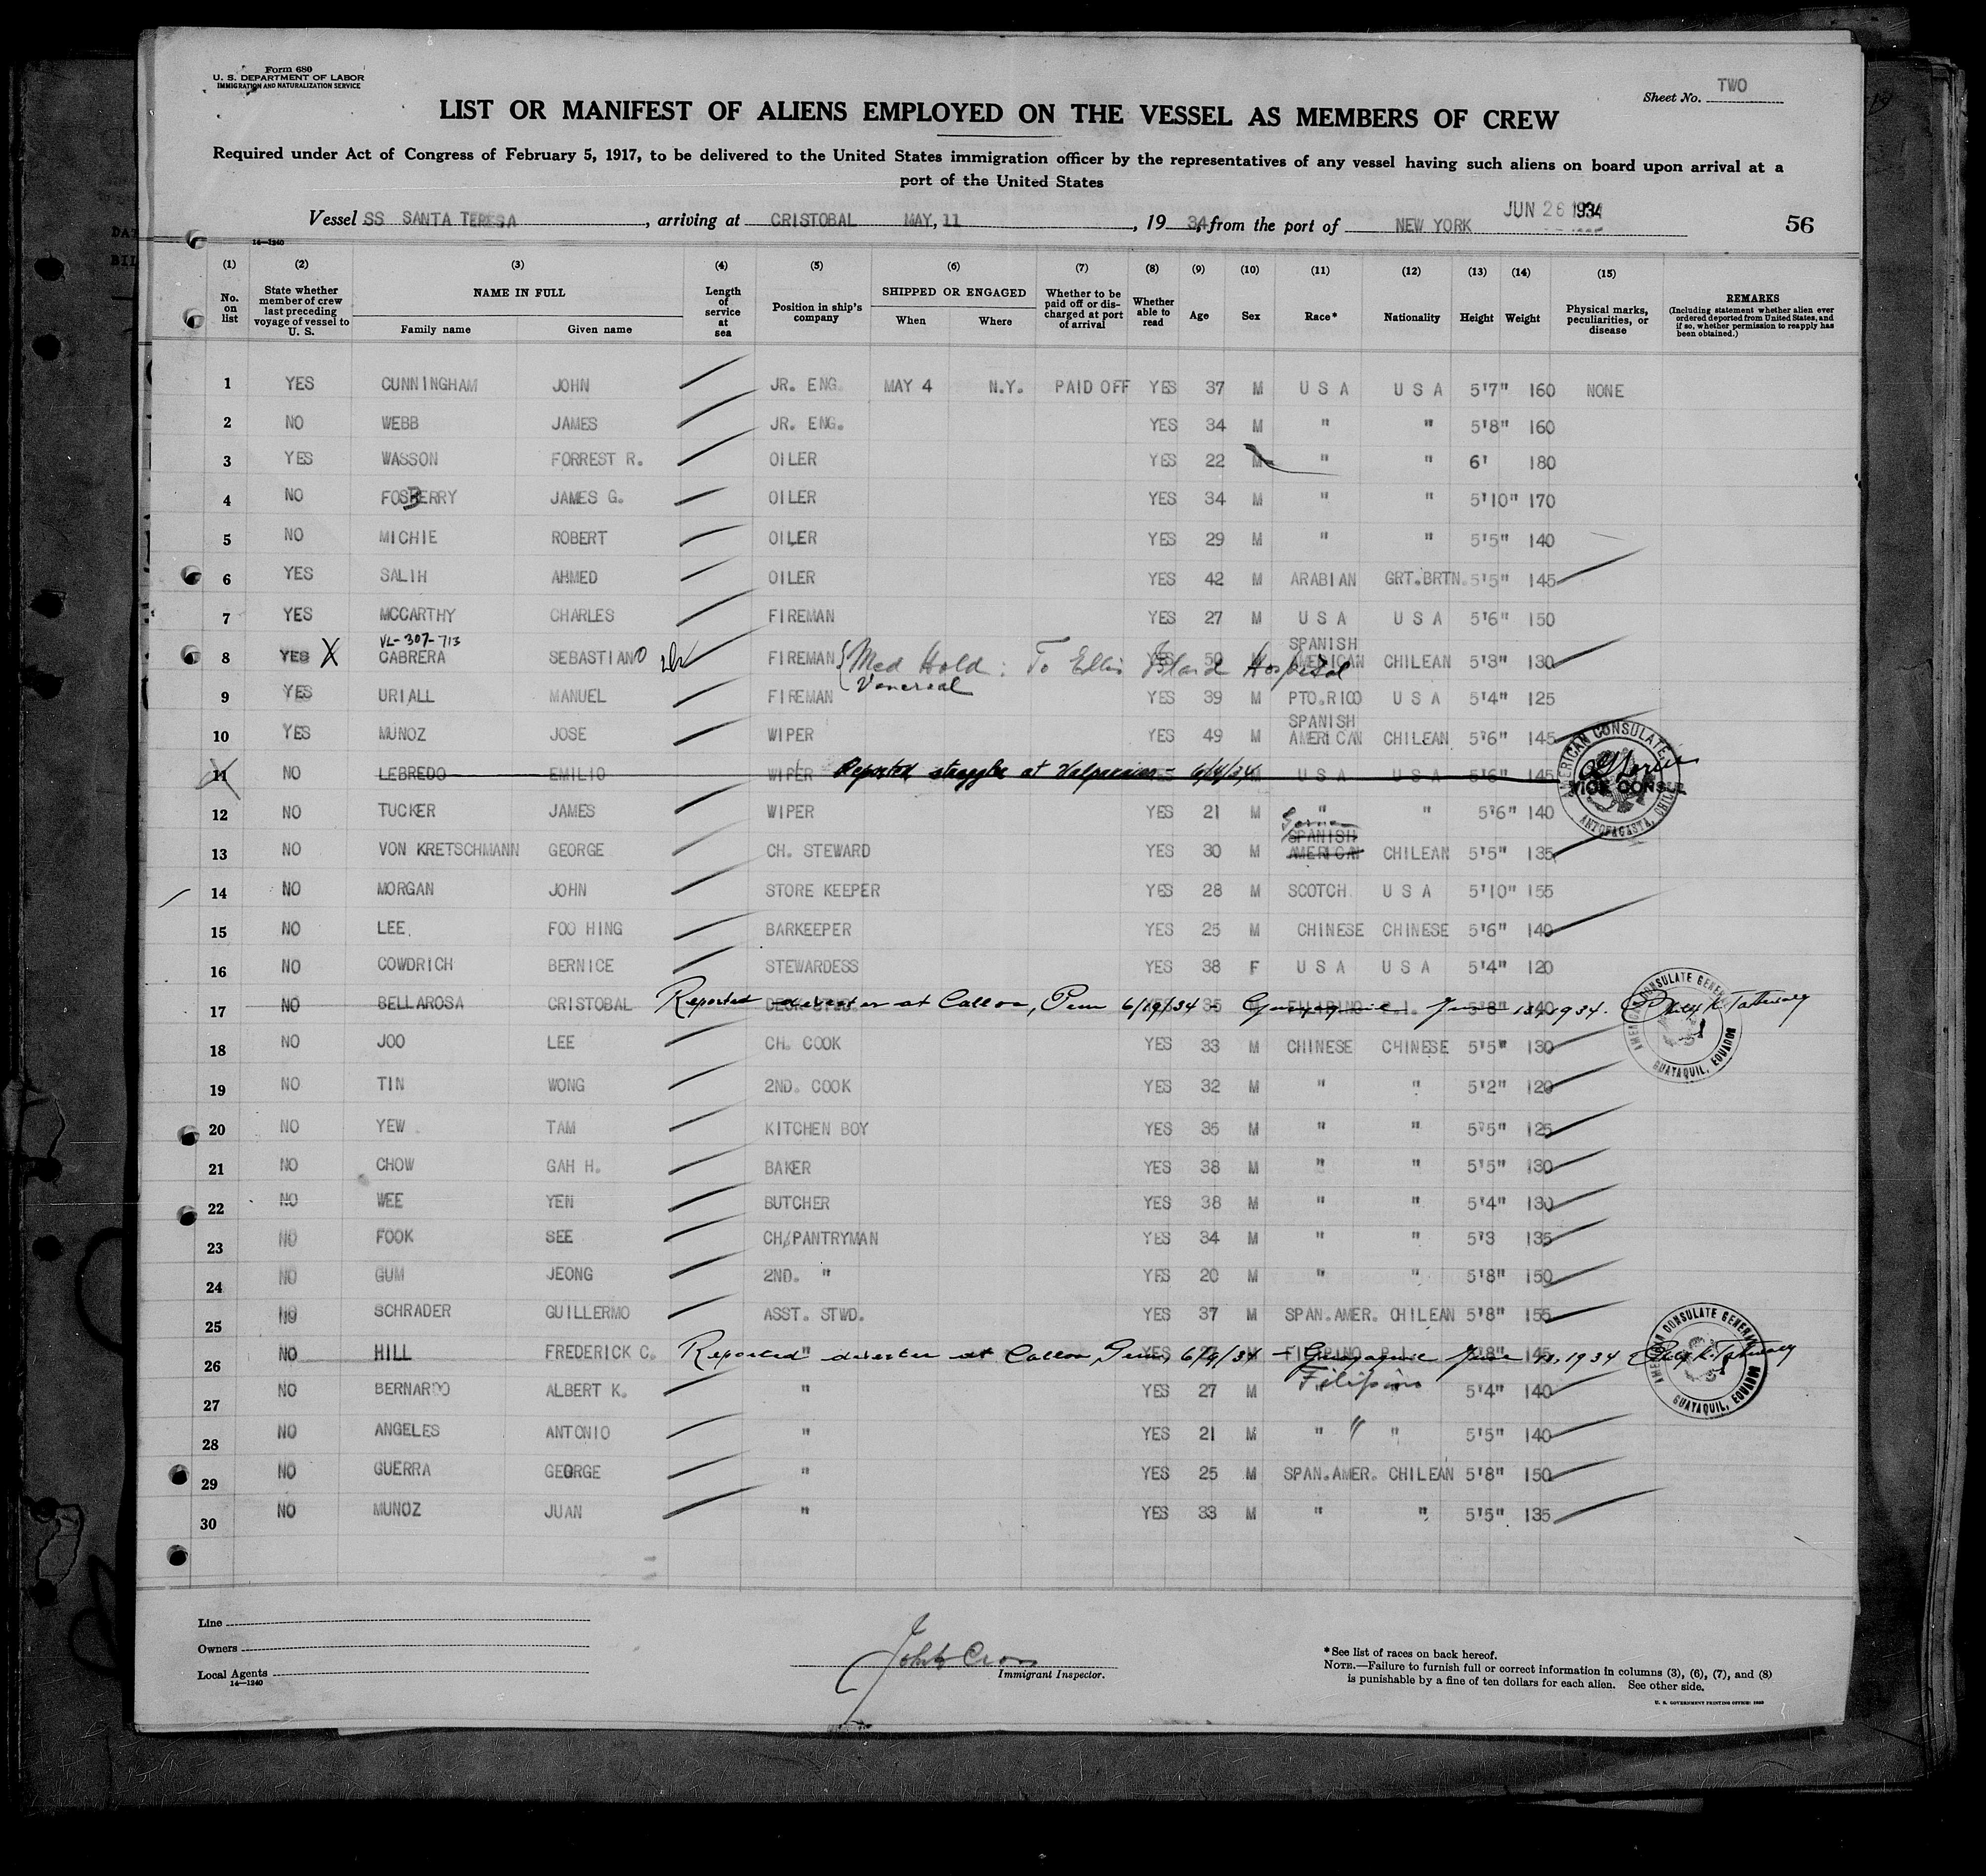 Form 680
U. S. DEPARTMENT OF LABOR
IMMIGRATION AND NATURALIZATION SERVICE
Sheet No. TWO
LIST OR MANIFEST OF ALIENS EMPLOYED ON THE VESSEL AS MEMBERS OF CREW
Required under Act of Congress of February 5, 1917, to be delivered to the United States immigration officer by the representatives of any vessel having such aliens on board upon arrival at a
port of the United States
JUN 26 1934
Vessel SS SANTA TERESA, arriving at CRISTOBAL MAY, 11, 19 34, from the port of NEW YORK 56
14—1240
(1) (2) (3) (4) (5) (6) (7) (8) (9) (10) (11) (12) (13) (14) (15)
No. on list
State whether member of crew last preceding voyage of vessel to U. S.
NAME IN FULL
Family name Given name
Length of service at sea
Position in ship's company
SHIPPED OR ENGAGED
When Where
Whether to be paid off or discharged at port of arrival
Whether able to read
Age
Sex
Race*
Nationality
Height
Weight
Physical marks, peculiarities, or disease
REMARKS
(Including statement whether alien ever ordered deported from United States, and if so, whether permission to reapply has been obtained.)
1 YES CUNNINGHAM JOHN JR. ENG. MAY 4 N.Y. PAID OFF YES 37 M U S A U S A 5'7" 160 NONE
2 NO WEBB JAMES JR. ENG. YES 34 M " " 5'8" 160
3 YES WASSON FORREST R. OILER YES 22 M " " 6' 180
4 NO FOSBERRY JAMES G. OILER YES 34 M " " 5'10" 170
5 NO MICHIE ROBERT OILER YES 29 M " " 5'5" 140
6 YES SALIH AHMED OILER YES 42 M ARABIAN GRT.BRTN. 5'5" 145
7 YES MCCARTHY CHARLES FIREMAN YES 27 M U S A U S A 5'6" 150
VL-307-713
8 YES X CABRERA SEBASTIANO FIREMAN YES 50 M SPANISH AMERICAN CHILEAN 5'3" 130
Med Hold: To Ellis Island Hospital
Venereal
9 YES URIALL MANUEL FIREMAN YES 39 M PTO.RICO U S A 5'4" 125
10 YES MUNOZ JOSE WIPER YES 49 M SPANISH AMERICAN CHILEAN 5'6" 145
11 NO LEBREDO EMILIO WIPER Reported straggler at Valparaiso - 6/4/34 M U S A U S A 5'6" 145
AMERICAN CONSULATE
VICE CONSUL
ANTOFAGASTA, CHILE
12 NO TUCKER JAMES WIPER YES 21 M " " 5'6" 140
German
13 NO VON KRETSCHMANN GEORGE CH. STEWARD YES 30 M SPANISH AMERICAN CHILEAN 5'5" 135
14 NO MORGAN JOHN STORE KEEPER YES 28 M SCOTCH U S A 5'10" 155
15 NO LEE, FOO HING BARKEEPER YES 25 M CHINESE CHINESE 5'6" 140
16 NO COWDRICH BERNICE STEWARDESS YES 38 F U S A U S A 5'4" 120
17 NO BELLAROSA CRISTOBAL 35 FILIPINO P.I. 5'8" 140
Reported deserter at Callao, Peru 6/19/34 - Guayaquil June 1934.
AMERICAN CONSULATE GENERAL
GUAYAQUIL, ECUADOR
18 NO JOO LEE CH. COOK YES 33 M CHINESE CHINESE 5'5" 130
19 NO TIN WONG 2ND. COOK YES 32 M " " 5'2" 120
20 NO YEW TAM KITCHEN BOY YES 35 M " " 5'5" 125
21 NO CHOW GAH H. BAKER YES 38 M " " 5'5" 130
22 NO WEE YEN BUTCHER YES 38 M " " 5'4" 130
23 NO FOOK SEE CH/PANTRYMAN YES 34 M " " 5'3 135
24 NO GUM JEONG 2ND. " YES 20 M " " 5'8" 150
25 NO SCHRADER GUILLERMO ASST. STWD. YES 37 M SPAN.AMER. CHILEAN 5'8" 155
26 NO HILL FREDERICK C. " FILIPINO P.I. 5'8" 145
Reported deserter at Callao, Peru, 6/9/34 - Guayaquil June 1934
AMERICAN CONSULATE GENERAL
GUAYAQUIL, ECUADOR
Filipino
27 NO BERNARDO ALBERT K. " YES 27 M 5'4" 140
28 NO ANGELES ANTONIO " YES 21 M " " " 5'5" 140
29 NO GUERRA GEORGE " YES 25 M SPAN.AMER. CHILEAN 5'8" 150
30 NO MUNOZ JUAN " YES 33 M " " 5'5" 135
Line
Owners
Local Agents
14—1240
Immigrant Inspector.
*See list of races on back hereof.
NOTE.—Failure to furnish full or correct information in columns (3), (6), (7), and (8)
is punishable by a fine of ten dollars for each alien. See other side.
U. S. GOVERNMENT PRINTING OFFICE: 1932